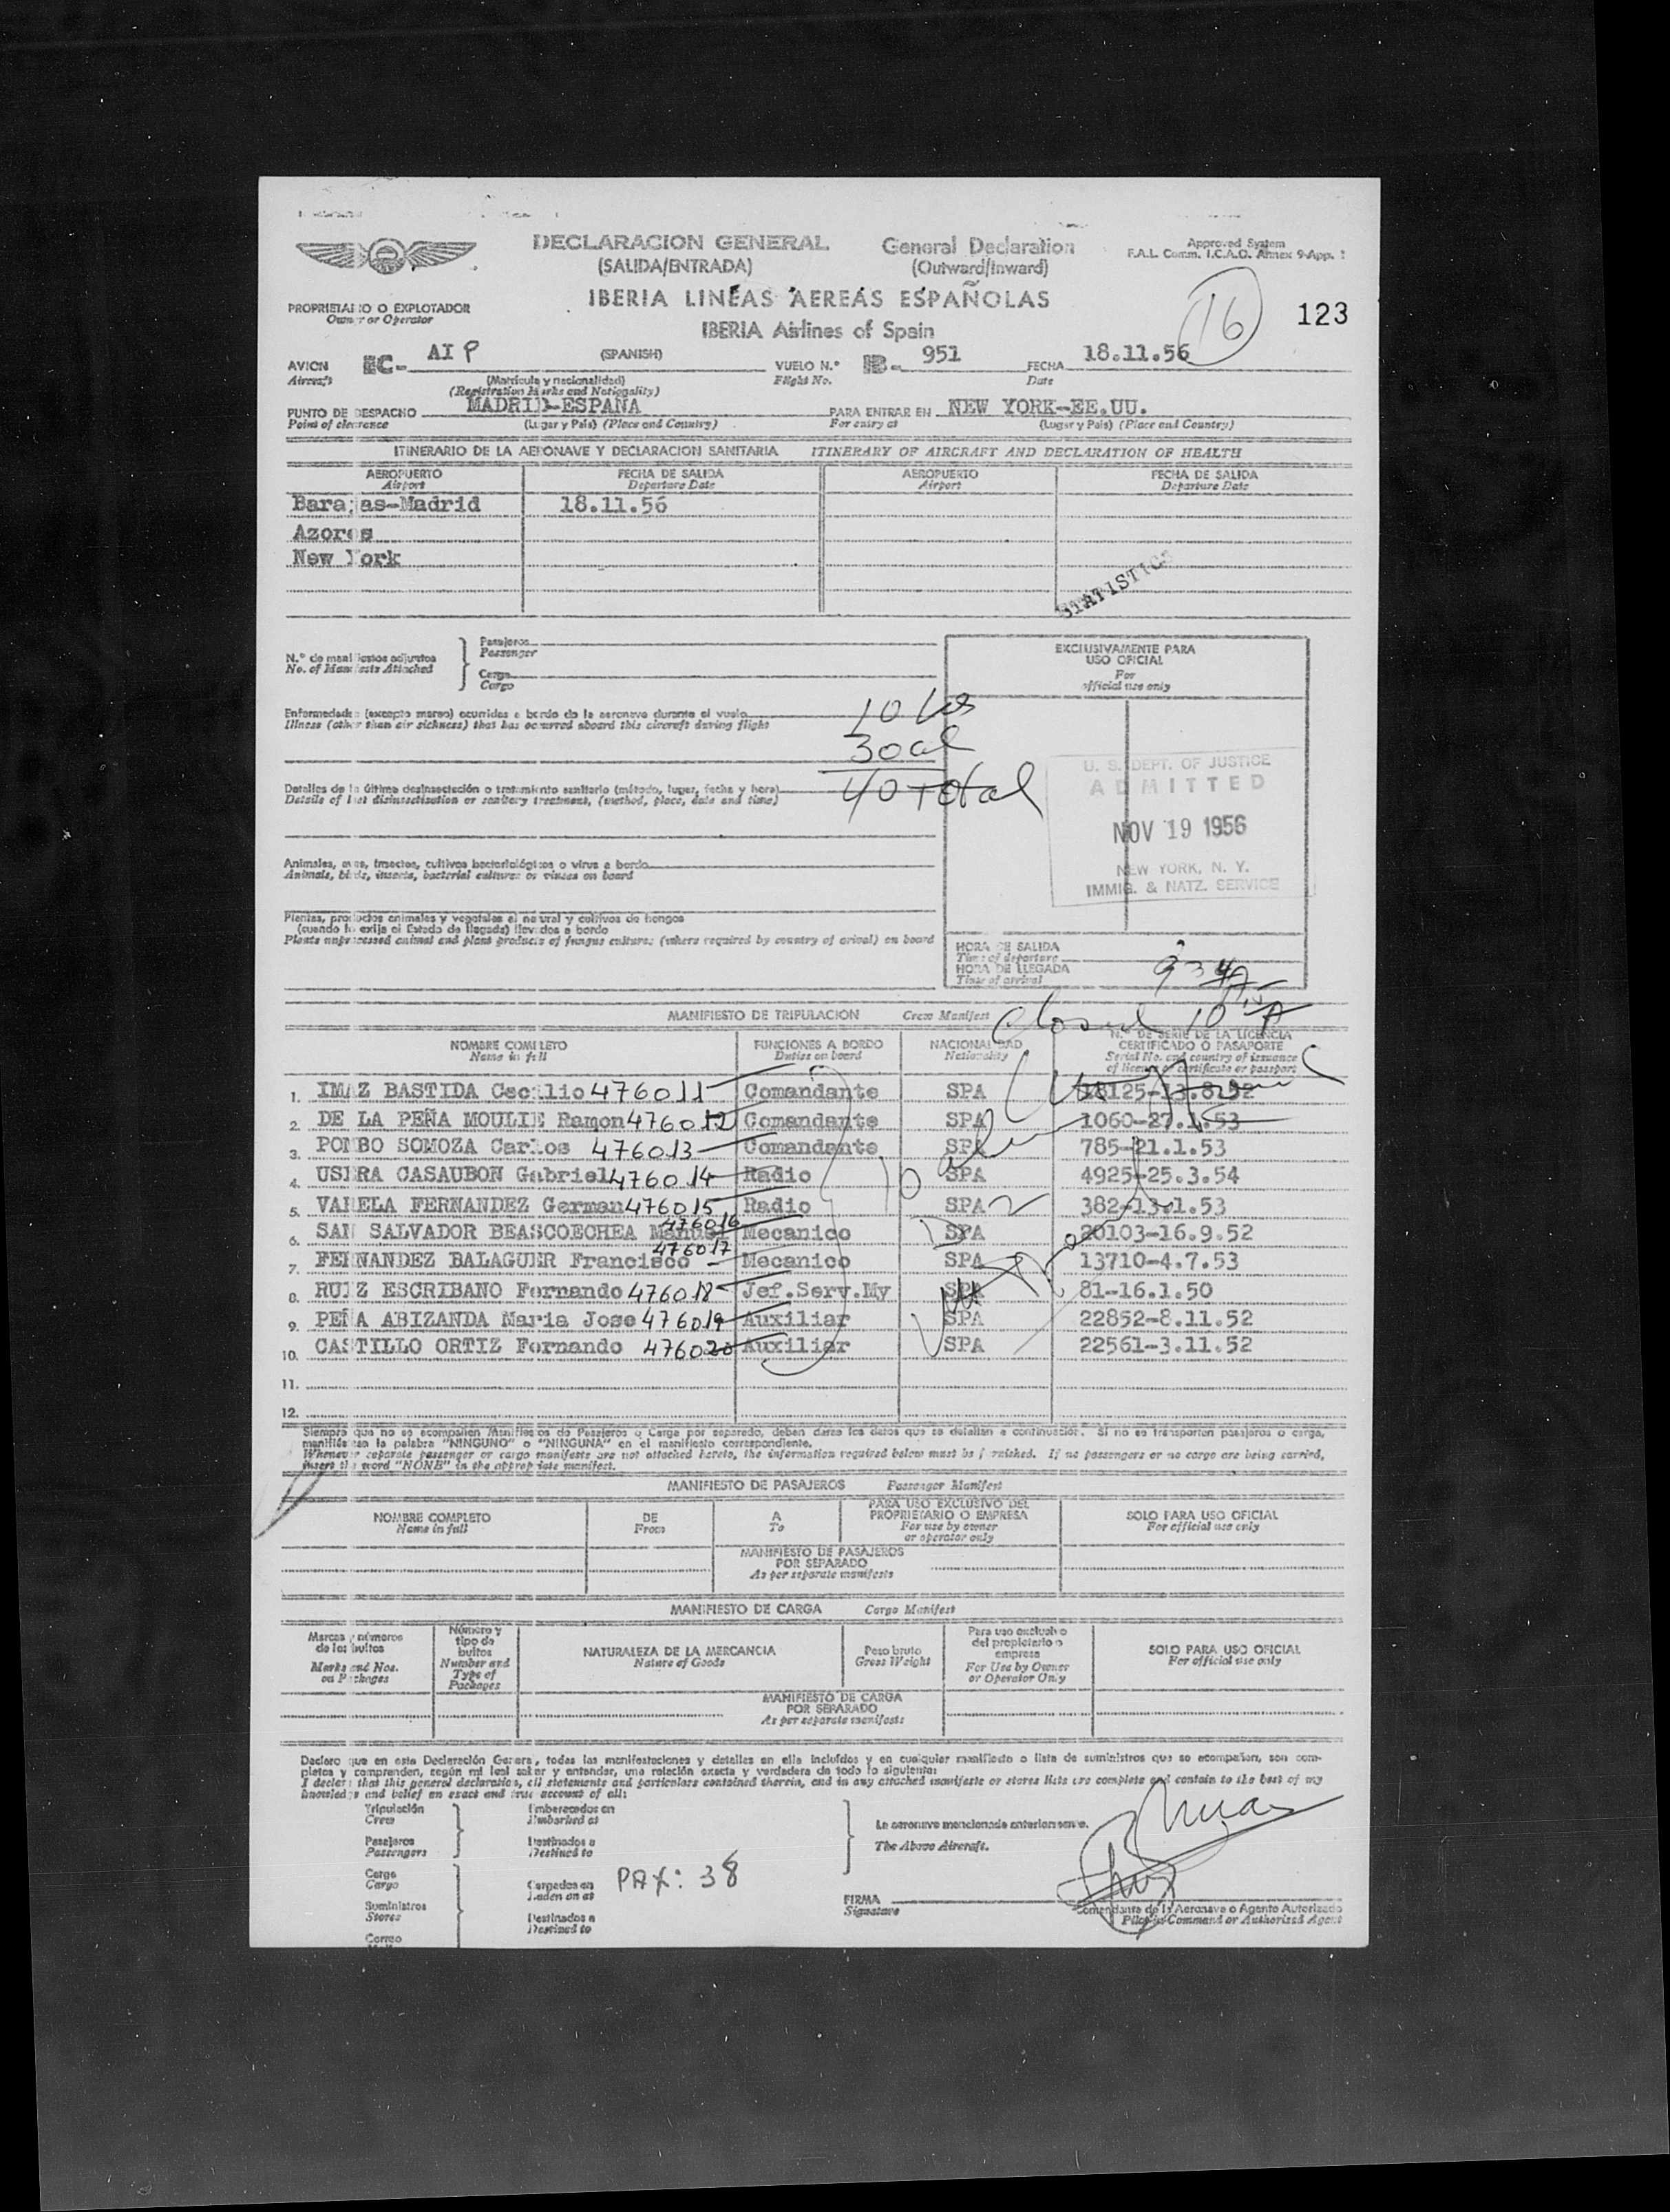 DECLARACION GENERAL General Declaration Approved System
(SALIDA/ENTRADA) (Outward/Inward) F.A.L. Comm. I.C.A.O. Annex 9-App. 1
IBERIA LINEAS AEREAS ESPAÑOLAS 16 123
PROPRIETARIO O EXPLOTADOR
Owner or Operator
IBERIA Airlines of Spain
AVION EC- AI P (SPANISH) VUELO N.° IB- 951 FECHA 18.11.56
Aircraft (Matrícula y nacionalidad) Flight No. Date
(Registration Marks and Nationality)
PUNTO DE DESPACHO MADRID-ESPAÑA PARA ENTRAR EN NEW YORK-EE.UU.
Point of clearance (Lugar y País) (Place and Country) For entry at (Lugar y País) (Place and Country)
ITINERARIO DE LA AERONAVE Y DECLARACION SANITARIA ITINERARY OF AIRCRAFT AND DECLARATION OF HEALTH
AEROPUERTO FECHA DE SALIDA AEROPUERTO FECHA DE SALIDA
Airport Departure Date Airport Departure Date
Barajas-Madrid 18.11.56
Azores
New York
STATISTICS
N.° de manifiestos adjuntos
No. of Manifests Attached
Pasajeros
Passenger
Carga
Cargo
EXCLUSIVAMENTE PARA
USO OFICIAL
For
official use only
Enfermedades (excepto mareo) ocurridas a bordo de la aeronave durante el vuelo
Illness (other than air sickness) that has occurred aboard this aircraft during flight
10
30
40 Total
Detalles de la última desinsectación o tratamiento sanitario (método, lugar, fecha y hora)
Details of last disinsectisation or sanitary treatment, (method, place, date and time)
U. S. DEPT. OF JUSTICE
ADMITTED
NOV 19 1956
NEW YORK, N. Y.
IMMIG. & NATZ. SERVICE
Animales, aves, insectos, cultivos bacteriológicos o virus a bordo
Animals, birds, insects, bacterial cultures or viruses on board
Plantas, productos animales y vegetales al natural y cultivos de hongos
(cuando lo exija el Estado de llegada) llevados a bordo
Plants unprocessed animal and plant products of fungus cultures (where required by country of arival) on board
HORA DE SALIDA
Time of departure
HORA DE LLEGADA
Time of arrival
934A
MANIFIESTO DE TRIPULACION Crew Manifest
closed 10
NOMBRE COMPLETO FUNCIONES A BORDO NACIONALIDAD N.° DE SERIE DE LA LICENCIA
Name in full Duties on board Nationality CERTIFICADO O PASAPORTE
Serial No. and country of issuance
of licence or certificate or passport
1. IMAZ BASTIDA Cecilio 476011 Comandante SPA 18125-13.8.52
2. DE LA PEÑA MOULIE Ramon 476012 Comandante SPA 1060-27.1.53
3. POMBO SOMOZA Carlos 476013 Comandante SPA 785-21.1.53
4. USERA CASAUBON Gabriel 476014 Radio SPA 4925-25.3.54
5. VARELA FERNANDEZ German 476015 Radio SPA 382-13.1.53
6. SAN SALVADOR BEASCOECHEA Manuel 476016 Mecanico SPA 20103-16.9.52
7. FERNANDEZ BALAGUER Francisco 476017 Mecanico SPA 13710-4.7.53
8. RUIZ ESCRIBANO Fernando 476018 Jef.Serv.My SPA 81-16.1.50
9. PEÑA ABIZANDA Maria Jose 476019 Auxiliar SPA 22852-8.11.52
10. CASTILLO ORTIZ Fernando 476020 Auxiliar SPA 22561-3.11.52
11.
12.
Siempre que no se acompañen Manifiestos de Pasajeros o Carga por separado, deben darse los datos que se detallan a continuación. Si no se transportan pasajeros o carga,
manifiéstese la palabra "NINGUNO" o "NINGUNA" en el manifiesto correspondiente.
Whenever separate passenger or cargo manifests are not attached hereto, the information required below must be furnished. If no passengers or no cargo are being carried,
insert the word "NONE" in the appropriate manifest.
MANIFIESTO DE PASAJEROS Passenger Manifest
NOMBRE COMPLETO DE A PARA USO EXCLUSIVO DEL SOLO PARA USO OFICIAL
Name in full From To PROPRIETARIO O EMPRESA For official use only
For use by owner
or operator only
MANIFIESTO DE PASAJEROS
POR SEPARADO
As per separate manifests
MANIFIESTO DE CARGA Cargo Manifest
Marcas y números
de los bultos
Marks and Nos.
on Packages
Número y
tipo de
bultos
Number and
Type of
Packages
NATURALEZA DE LA MERCANCIA
Nature of Goods
Peso bruto
Gross Weight
Para uso exclusivo
del propietario o
empresa
For Use by Owner
or Operator Only
SOLO PARA USO OFICIAL
For official use only
MANIFIESTO DE CARGA
POR SEPARADO
As per separate manifests
Declaro que en esta Declaración General, todas las manifestaciones y detalles en ella incluídos y en cualquier manifiesto o lista de suministros que se acompañan, son com-
pletos y comprenden, según mi leal saber y entender, una relación exacta y verdadera de todo lo siguiente:
I declare that this general declaration, all statements and particulars contained therein, and in any attached manifests or stores lists are complete and contain to the best of my
knowledge and belief an exact and true account of all:
Tripulación Embarcados en
Crew Embarked at
Pasajeros Destinados a
Passengers Destined to
La aeronave mencionada anteriormente.
The Above Aircraft.
Carga Cargados en
Cargo Laden on at
PAX: 38
Suministros Destinados a
Stores Destined to
Correo
FIRMA
Signature
Comandante de la Aeronave o Agente Autorizado
Pilot in Command or Authorized Agent